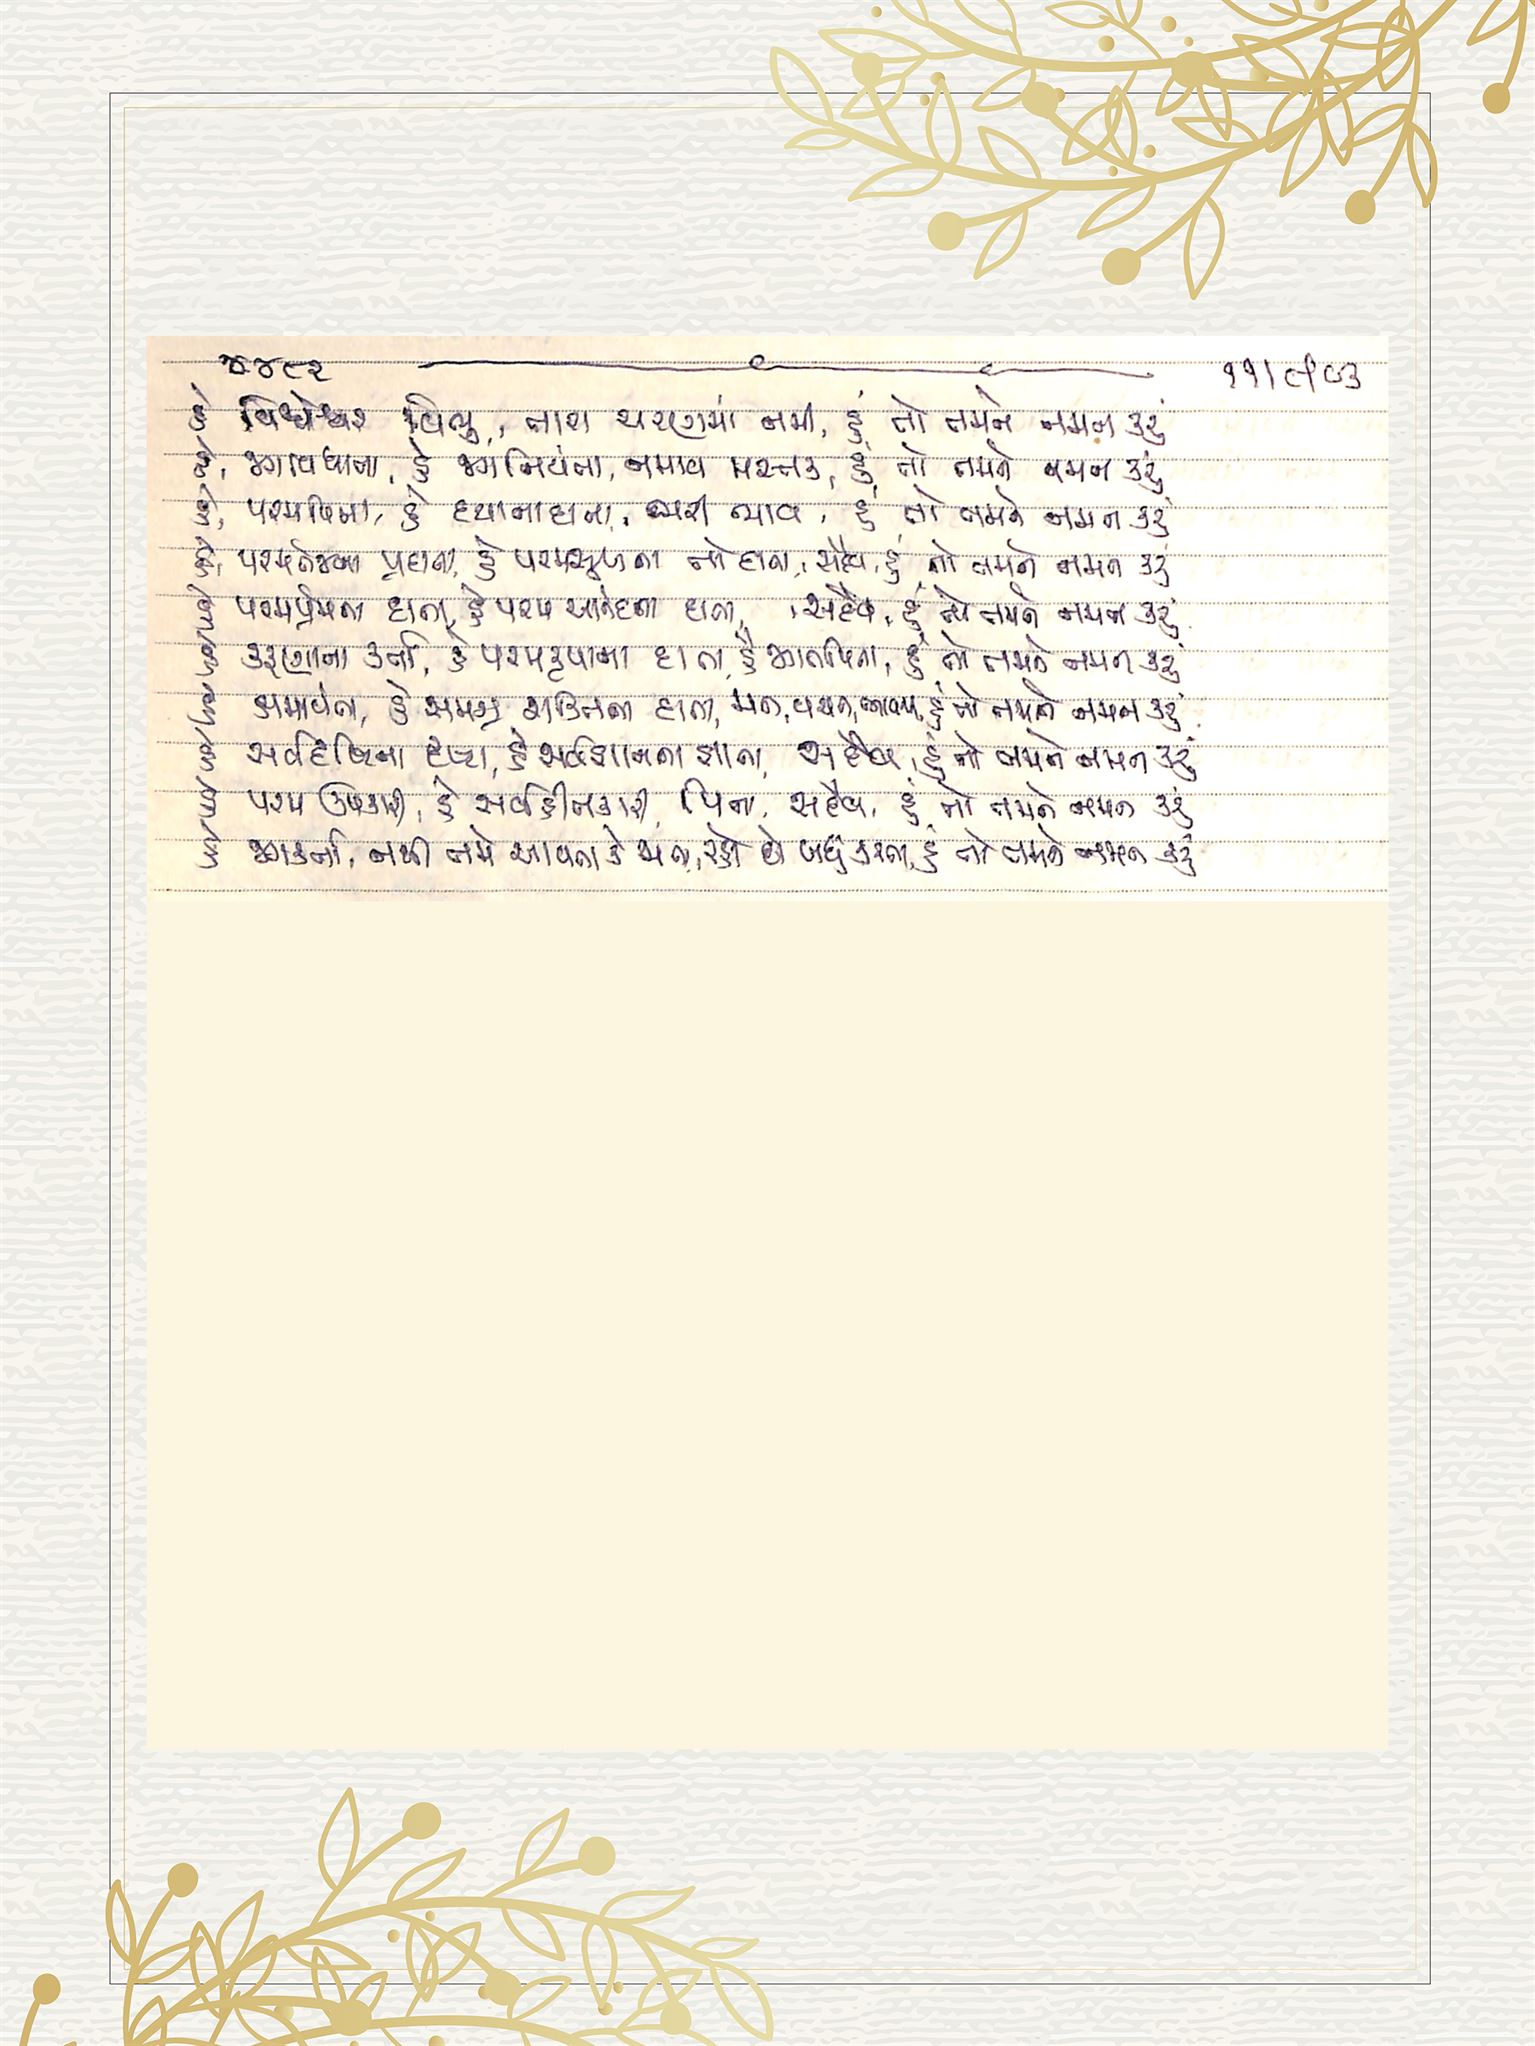 ૪૪૯૨
હે વિશ્વેશ્વર વિભુ, તારા ચરણમાં નમી, હું તો તમને નમન કરું
હે, જગવિધાતા, હે જગનિયંતા, નમાવી મસ્તક, હું તો તમને નમન કરું
હે, પરમપિતા, હે દયાના દાતા, ભાવ, હું તો તમને નમન કરું
હે, પરમતેજના પ્રદાતા, હે પરમસુખના તો દાતા, સદૈવ, હું તો તમને નમન કરું
હે પરમપ્રેમના દાતા, હે પરમ આનંદના દાતા, સદૈવ, હું તો તમને નમન કરું
હે કરુણાના કર્તા, હે પરમકૃપાના દાતા, હે જગતપિતા, હું તો તમને નમન કરું
હે ક્ષમાવંત, હે સમગ્ર શક્તિના દાતા, મન, વચન, હું તો તમને નમન કરું
હે સર્વદૃષ્ટિના દૃષ્ટા, હે સર્વજ્ઞાનના જ્ઞાતા, સદૈવ, હું તો તમને નમન કરું
હે પરમ ઉપકારી, હે સર્વહીતકારી પિતા, સદૈવ, હું તો તમને નમન કરું
હે જગકર્તા, નથી તમે આવતા કે જાતા, રહો છો બધું કરતા, હું તો તમને નમન કરું